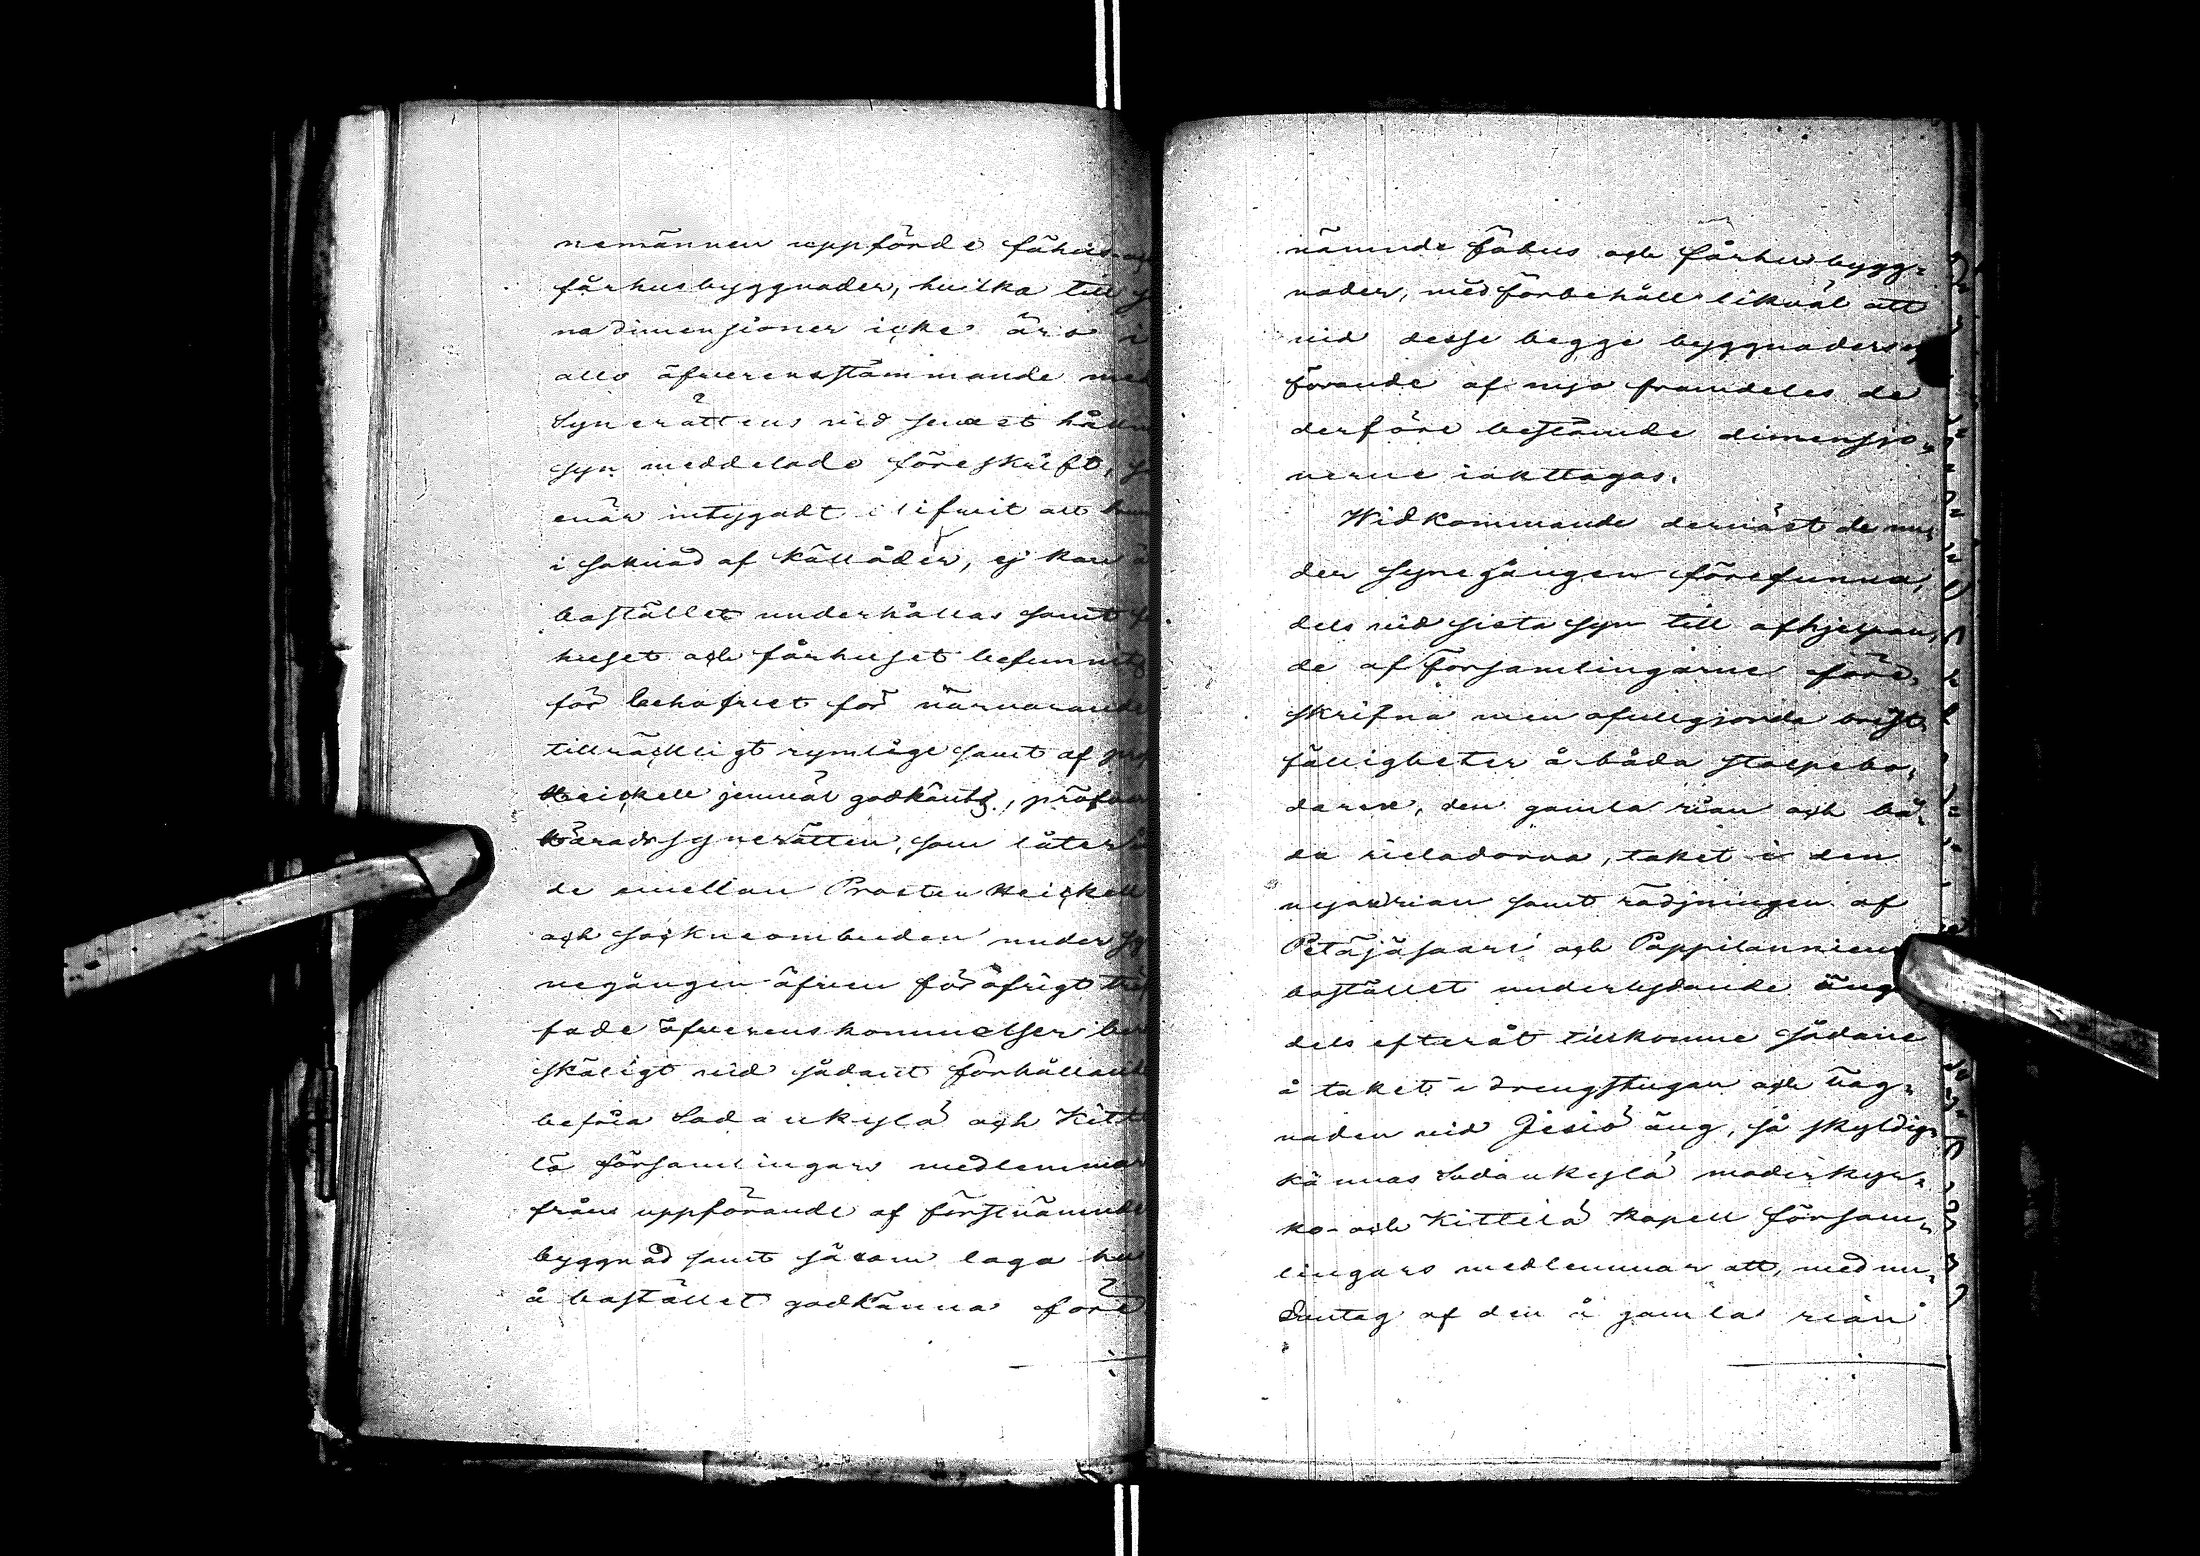 nemännen uppförde fähus- och
fårhusbyggnader, hvilka till
na dimensioner icke äro i
allo öfverensstämmande med
Synerättens vid senast hållna
syn meddelade föreskrift,
enär intygadt blifvit att
i saknad af källåder, ej kan å
bostället underhållas samt
huset och fårhuset befunnits
för behofvet för närvarande
tillräckligt rymlige samt af
Heickell jemväl godkänts, pröfvar
Häradssynerätten, som låter
de emellan Prosten Heickell
och sockneombuden under sy
negången äfven föröfrigt träf
fade öfverenskommelser
skäligt vid sådant förhållande
befria Sodankylä och Kitti
lä församlingars medlemmar
från uppförande af förstnämnde
byggnad samt såsom laga hus
å bostället godkänna före
nämnde fähus och fårhusbygg-
nader, med förbehåll likväl att
vid desse begge byggnaders
förande af nya framdeles de
derföre bestämde dimensio-
nerne iakttagas.
Widkommande dernäst de un-
der synegången förefunna,
dels vid sista syn till afhjelpan-
de af församlingarne före-
skrifna men ofullgjorda brist-
fälligheter å båda stolpebo-
darne, den gamla rian och bå-
da rieladorna, taket å den
nya rian samt rödjningen af
Petäjäsaari och Pappilanniemi
bostället underlydande äng
dels efteråt tillkomne sådane
å taket å drengstugan och häg-
naden vid Jesiö äng, så skyldig-
kännas Sodankylä moderkyr-
ko- och Kittilä kapell försam-
lingars medlemmar att, med un-
dantag af den å gamla rian